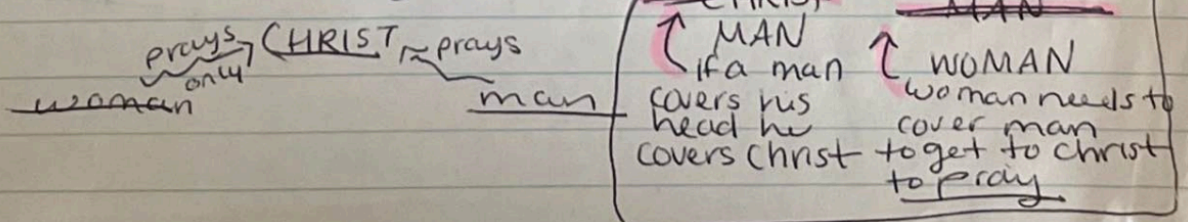 prays CHRIST prays
only
woman
man
CHRIST
MAN
MAN
if a man
covers his
head he
covers Christ
WOMAN
woman needs to
cover man
to get to Christ
to pray